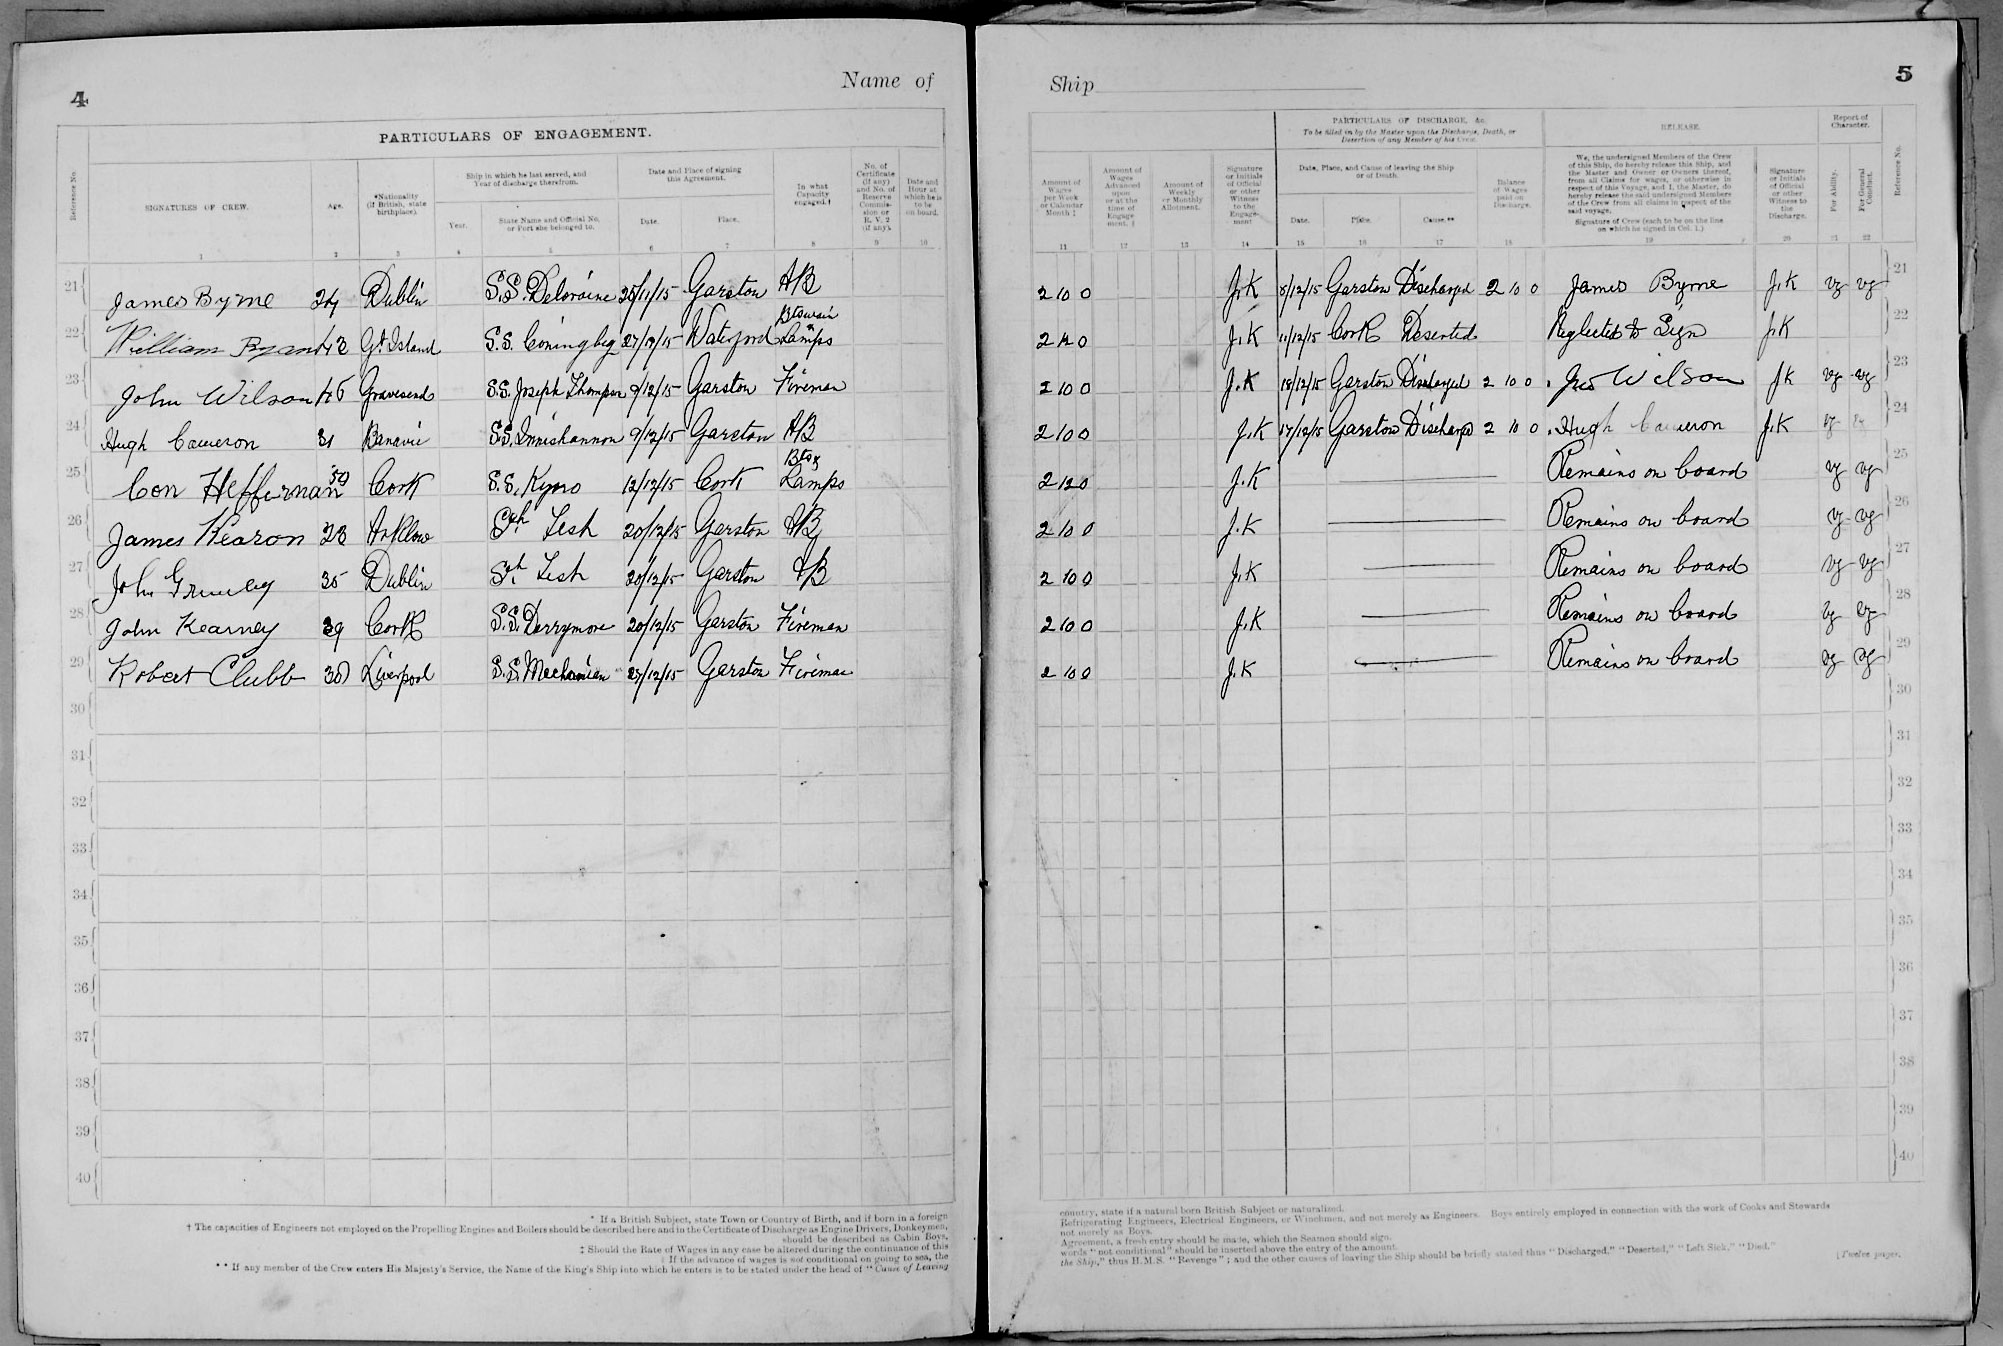 4
Name of
PARTICULARS OF ENGAGEMENT.
Reference No.
SIGNATURES OF CREW.
Age.
*Nationality
(if British, state
birthplace).
Ship in which he last served, and
Year of discharge therefrom.
Year.
State Name and Official No.
or Port she belonged to.
Date and Place of signing
this Agreement.
Date.
Place.
In what
Capacity
engaged.†
No. of
Certificate
(if any)
and No. of
Reserve
Commis-
sion or
R. V. 2
(if any).
Date and
Hour at
which he is
to be
on board.
1 2 3 4 5 6 7 8 9 10
21 James Byrne 24 Dublin S.S. Deloraine 25/11/15 Garston AB
22 William Ryan 42 Gt Island S.S. Coningbeg 27/9/15 Waterford Btswain & Lamps
23 John Wilson 46 Gravesend S.S. Joseph Thompson 9/12/15 Garston Fireman
24 Hugh Cameron 31 Banavie S.S. Innishannon 9/12/15 Garston AB
25 Con Heffernan 59 Cork S.S. Kyno 12/12/15 Cork Bts & Lamps
26 James Kearon 28 Arklow Sch Tesh 20/12/15 Garston AB
27 John 35 Dublin Sch Tesh 20/12/15 Garston AB
28 John Kearney 39 Cork S.S. Derrymore 20/12/15 Garston Fireman
29 Robert Clubb 38 Liverpool S.S. Mechanician 27/12/15 Garston Fireman
30
31
32
33
34
35
36
37
38
39
40
* If a British Subject, state Town or Country of Birth, and if born in a foreign
† The capacities of Engineers not employed on the Propelling Engines and Boilers should be described here and in the Certificate of Discharge as Engine Drivers, Donkeymen,
should be described as Cabin Boys,
‡ Should the Rate of Wages in any case be altered during the continuance of this
If the advance of wages is not conditional on going to sea, the
** If any member of the Crew enters His Majesty's Service, the Name of the King's Ship into which he enters is to be stated under the head of "Cause of Leaving
Ship
5
Amount of
Wages
per Week
or Calendar
Month ‡
Amount of
Wages
Advanced
upon
or at the
time of
Engage
ment.
Amount of
Weekly
or Monthly
Allotment.
Signature
or Initials
of Official
or other
Witness
to the
Engage-
ment
PARTICULARS OF DISCHARGE, &c.
To be filled in by the Master upon the Discharge, Death, or
Desertion of any Member of his Crew.
Date, Place, and Cause of leaving the Ship
or of Death.
Date.
Place.
Cause.**
Balance
of Wages
paid on
Discharge.
RELEASE.
We, the undersigned Members of the Crew
of this Ship, do hereby release this Ship, and
the Master and Owner or Owners thereof,
from all Claims for wages, or otherwise in
respect of this Voyage, and I, the Master, do
hereby release the said undersigned Members
of the Crew from all claims in respect of the
said voyage.
Signature of Crew (each to be on the line
on which he signed in Col. 1.)
Signature
or Initials
of Official
or other
Witness to
the
Discharge.
Report of
Character.
For Ability.
For General
Conduct.
Reference No.
11 12 13 14 15 16 17 18 19 20 21 22
2 10 0 J.K 8/12/15 Garston Discharged 2 10 0 James Byrne J.K vg vg 21
2 12 0 J.K 11/12/15 Cork Deserted Neglected to Sign J.K 22
2 10 0 J.K 18/12/15 Garston Discharged 2 10 0 Jno Wilson JK vg vg 23
2 10 0 J.K 17/12/15 Garston Discharged 2 10 0 Hugh Cameron J.K vg vg 24
2 12 0 J.K Remains on board vg vg 25
2 10 0 J.K Remains on board vg vg 26
2 10 0 J.K Remains on board vg vg 27
2 10 0 J.K Remains on board vg vg 28
2 10 0 J.K Remains on board vg vg 29
30
31
32
33
34
35
36
37
38
39
40
country, state if a natural born British Subject or naturalised.
Refrigerating Engineers, Electrical Engineers, or Winchmen, and not merely as Engineers. Boys entirely employed in connection with the work of Cooks and Stewards
not merely as Boys.
Agreement, a fresh entry should be made, which the Seamen should sign.
words "not conditional" should be inserted above the entry of the amount.
the Ship," thus H.M.S. "Revenge"; and the other causes of leaving the Ship should be briefly stated thus "Discharged," "Deserted," "Left Sick," "Died."
[Twelve pages.